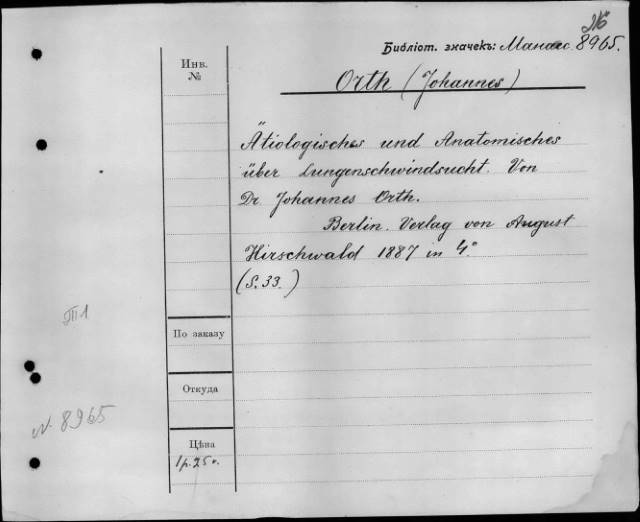 Библіот. значекъ: Манас. 8965.
Инв.
№
Orth (Johannes)
Ätiologisches und Anatomisches
über Lungenschwindsucht. Von
Dr. Johannes Orth.
Berlin. Verlag von August
Hirschwald 1887 in 4°
(S. 33.)
По заказу
Откуда
N. 8965
Цѣна
1 р. 25 к.